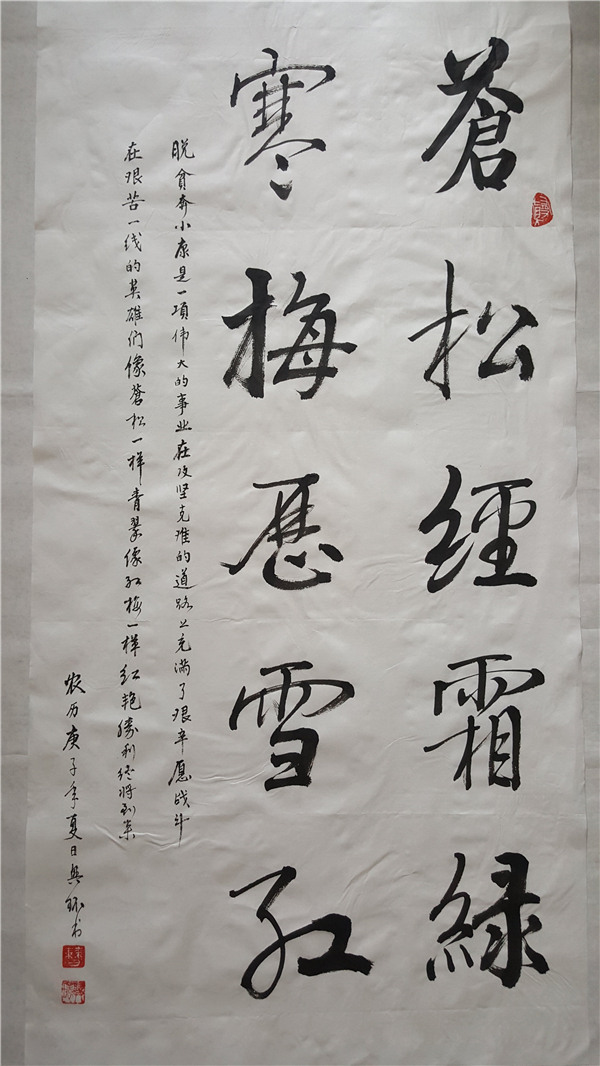 蒼松經霜綠
寒梅歷雪紅
脱貧奔小康是一項伟大的事业在攻坚克难的道路上充满了艰辛愿战斗
在艰苦一线的英雄们像蒼松一样青翠像红梅一样红艳勝利终将到来
农历庚子年夏日興 书